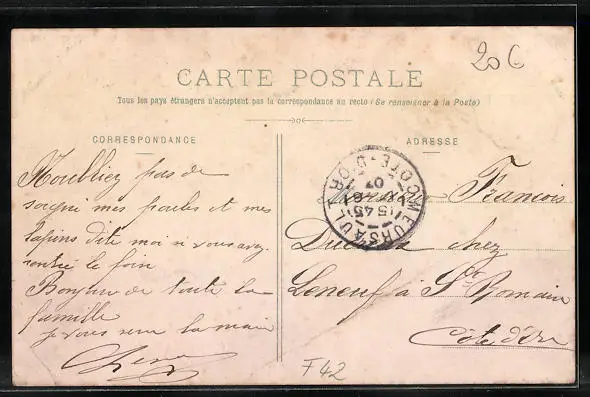 20 C
CARTE POSTALE
Tous les pays étrangers n'acceptent pas la correspondance au recto (Se renseigner à la Poste)
CORRESPONDANCE
ADRESSE
Noubliez pas de
soigne mes poules et mes
lapins dite moi si vous avez
rentré le foin
Bonjour de toute la
famille
je vous serre la main
MEURSAULT
CÔTE-D'OR
5 45
07
François
chez
Leneuf à St Romain
Côte d'Or
F42